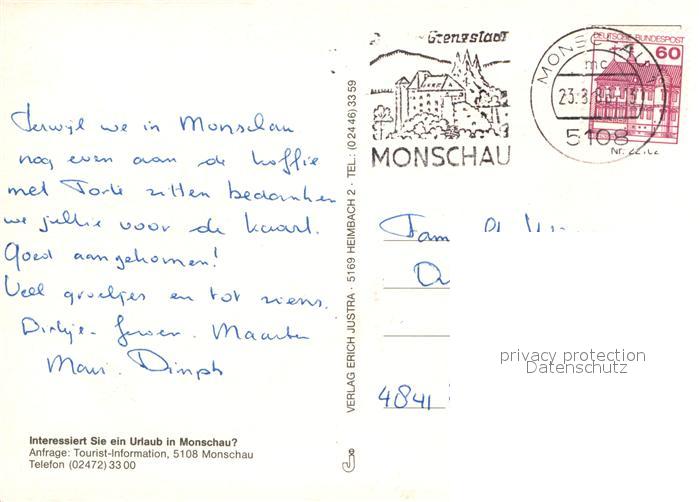 Terwijl we in Monschau
nog even aan de koffie
met Torte zitten bedanken
we jullie voor de kaart.
Goed aangekomen!
Veel groetjes en tot ziens.
Dirkje. Jeroen. Maarten
Interessiert Sie ein Urlaub in Monschau?
Anfrage: Tourist-Information, 5108 Monschau
Telefon (02472) 33 00
VERLAG ERICH JUSTRA · 5169 HEIMBACH 2 · TEL.: (0 24 46) 33 59
Grenzstadt
MONSCHAU
MONSCHAU
mc
5108
DEUTSCHE BUNDESPOST
60
Fam
4841
privacy protection
Datenschutz